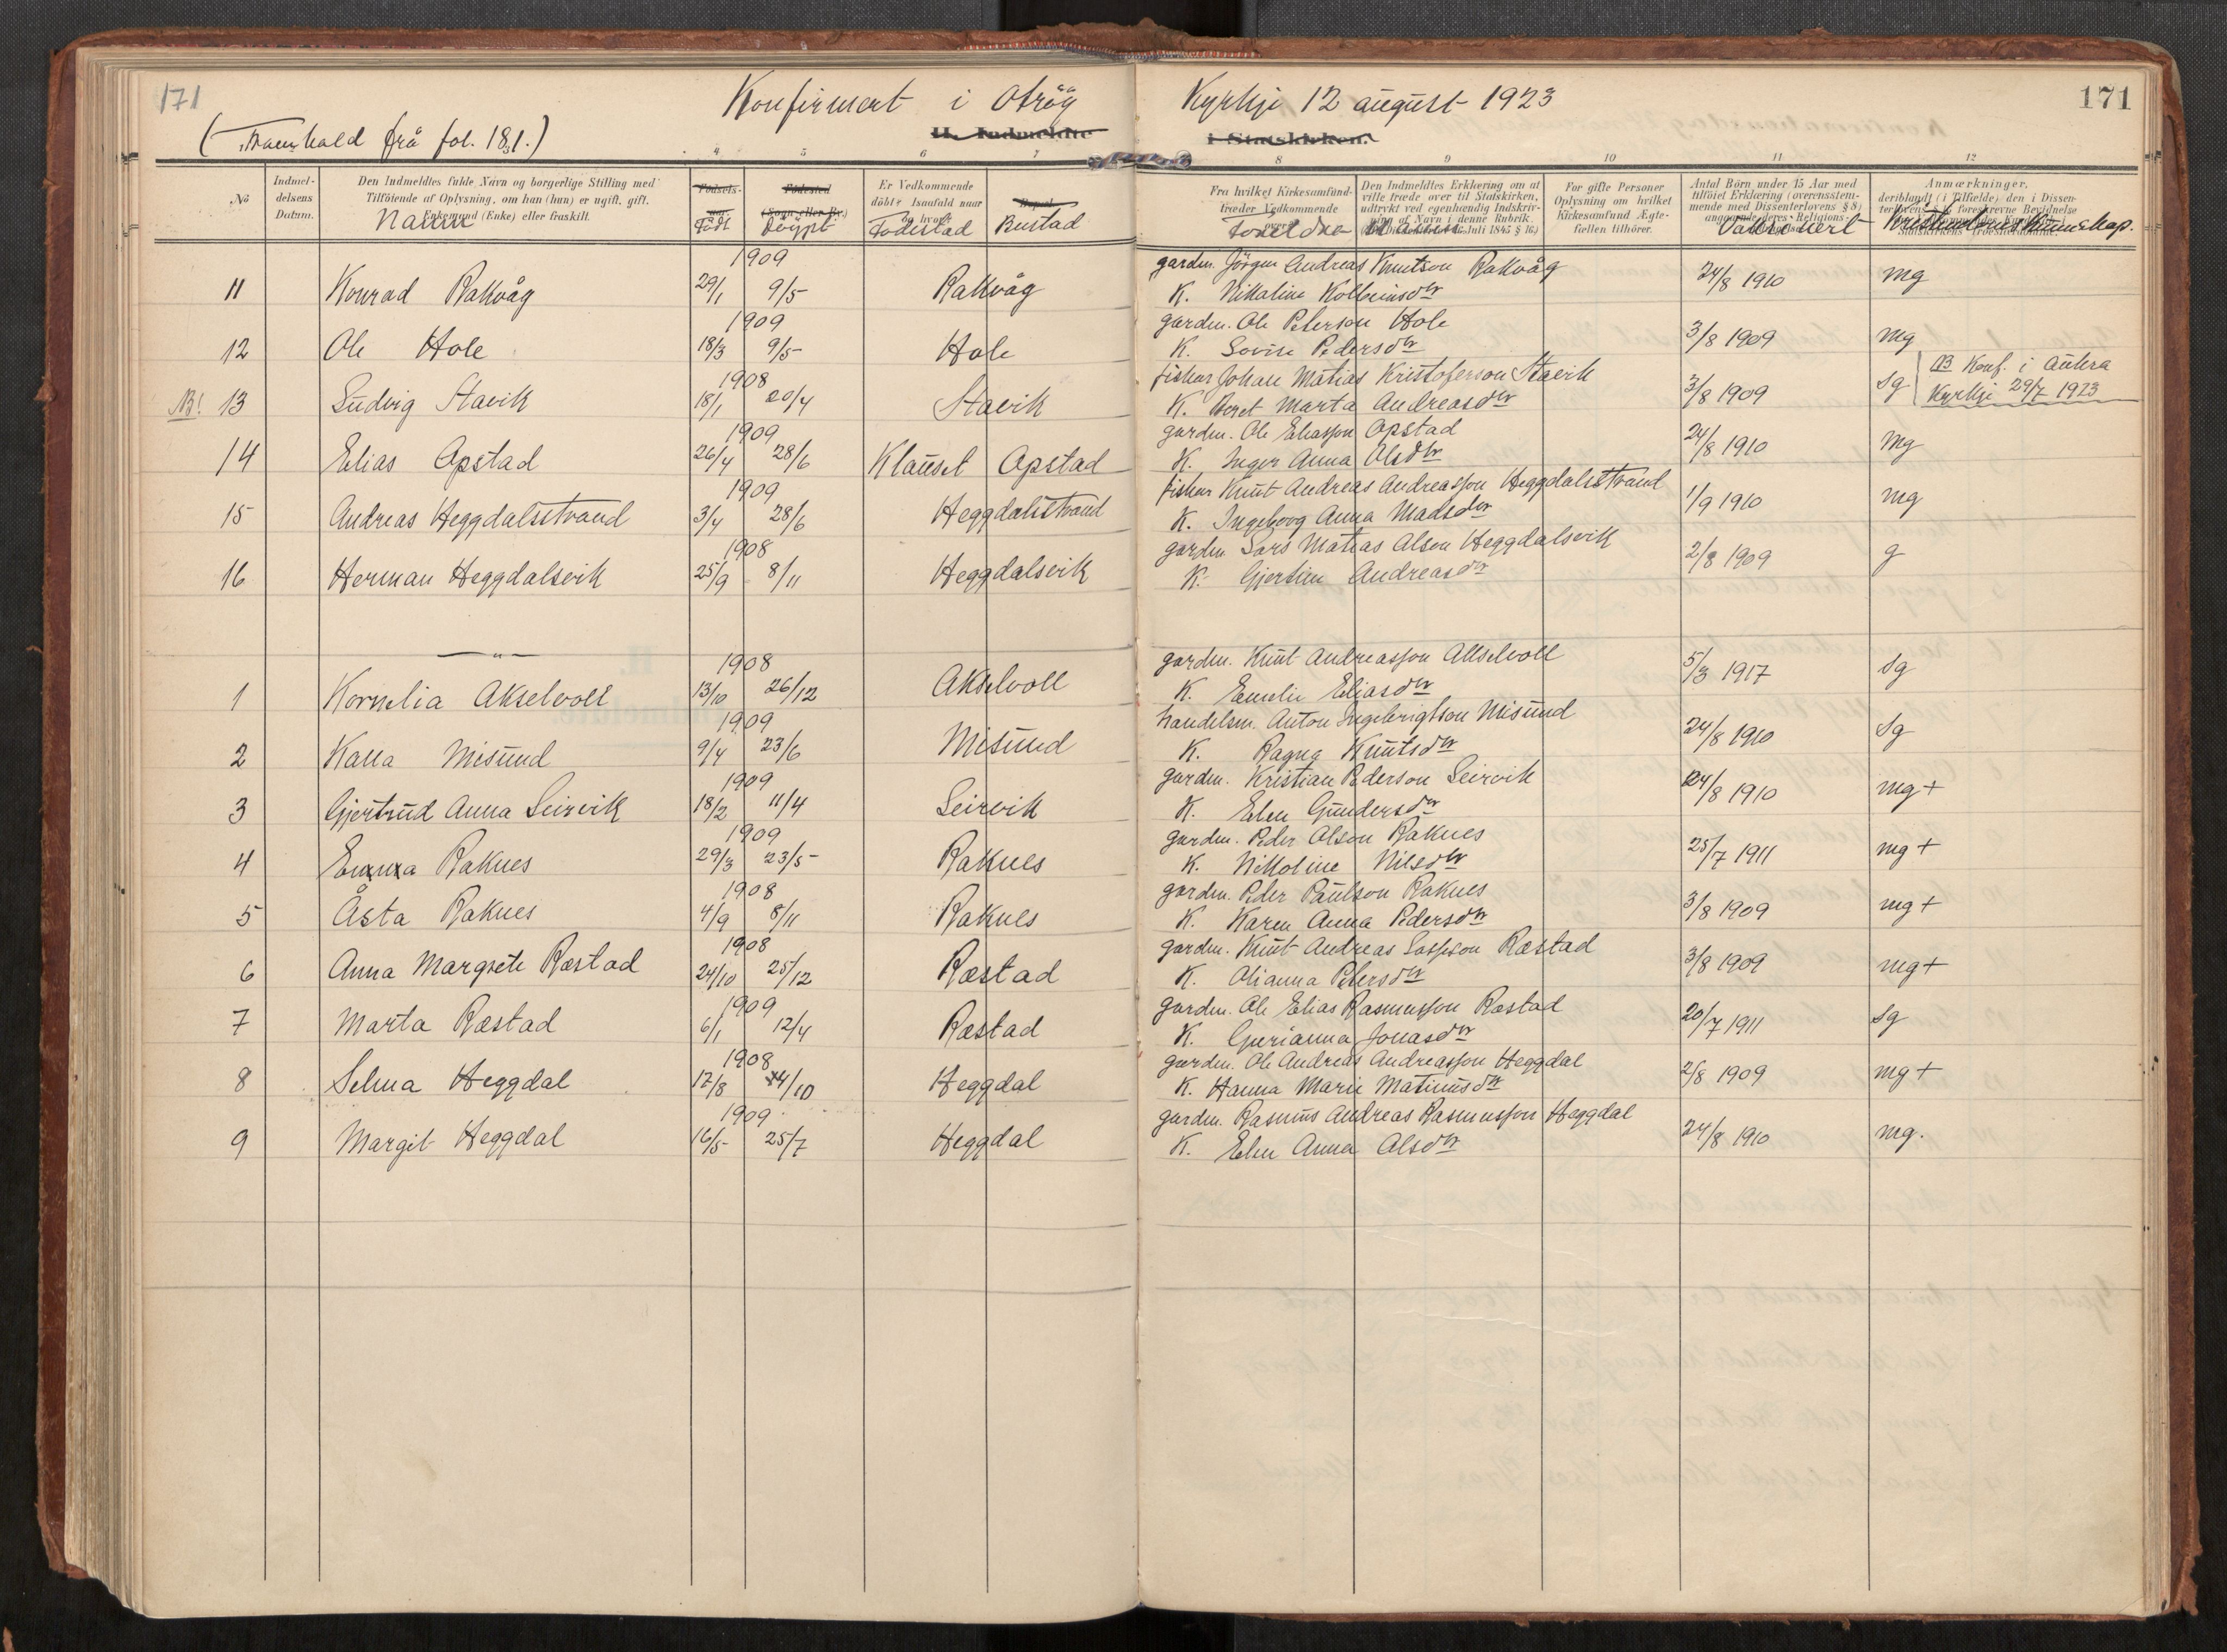 171
Konfirmert i Otröy Kyrkje 12 august 1923
171
(Framhald frå fol. 181.)
II. Indmeldte i Statskirken.
4 5 6 7 8 9 10 11 12
No
Indmeldelsens Datum.
Den Indmeldtes fulde Navn og borgerlige Stilling med Tilföiende af Oplysning, om han (hun) er ugift, gift, Enkemand (Enke) eller fraskilt.
Namn
Födselsaar.
Födt
Födested (Sogn eller By.)
Döypt
Er Vedkommende döbt? Isaafald naar og hvor?
Födestad
Bopæl.
Bustad
Fra hvilket Kirkesamfund træder Vedkommende over?
Foreldre
Den Indmeldtes Erklæring om at ville træde over til Statskirken, udtrykt ved egenhændig Indskrivning af Navn i denne Rubrik. (Jfr. Dissenterlov 16 Juli 1845 § 16.)
For gifte Personer Oplysning om hvilket Kirkesamfund Ægtefællen tilhörer.
Antal Börn under 15 Aar med tilföiet Erklæring (overensstemmende med Dissenterlovens § 8) angaaende deres Religions-
Vaksinert
Anmærkninger,
deriblandt (i Tilfælde) den i Dissenterlovens § 16 foreskrevne Bevidnelse
Kristendomskunnskap.
1909 gardm. Jörgen Andreas Knutson Rakvåg
11 Konrad Rakvåg 29/1 9/5 Rakvåg K. Nikoline Kolbeinsdtr 24/8 1910 mg
1909 gardm. Ole Peterson Hole
12 Ole Hole 18/3 9/5 Hole K. Lovise Pedersdtr 3/8 1909 mg
1908 fiskar Johan Matias Kristoferson Stavik NB Konf. i Aukra
NB! 13 Ludvig Stavik 18/1 20/4 Stavik K. Beret Marta Andreasdtr 3/8 1909 Sg Kyrkje 29/7 1923
1909 gardm. Ole Eliasson Opstad
14 Elias Opstad 26/4 28/6 Klauset Opstad K. Inger Anna Olsdtr 24/8 1910 mg
1909 fiskar Knut Andreas Andreasson Heggdalsstrand
15 Andreas Heggdalsstrand 3/4 28/6 Heggdalsstrand K. Ingeborg Anna Madsdtr 1/9 1910 mg
1908 gardm Lars Matias Olsen Heggdalsvik
16 Herman Heggdalsvik 25/9 8/11 Heggdalsvik K. Gjertine Andreasdtr 2/8 1909 g
— " —
1908 gardm. Knut Andreasson Akselvoll
1 Kornelia Akselvoll 13/10 26/12 Akselvoll K. Emelie Eliasdtr 5/3 1917 Sg
1909 handelsm. Anton Ingebrigtson Misund
2 Kalla Misund 9/4 23/6 Misund K. Ragna Knutsdtr 24/8 1910 Sg
1909 gardm. Kristian Pederson Seirvik
3 Gjertrud Anna Seirvik 18/2 11/4 Seirvik K. Elen Gundersdtr 24/8 1910 mg +
1909 gardm. Peder Olson Raknes
4 Emma Raknes 29/3 23/5 Raknes K. Nikoline Nilsdtr 25/7 1911 mg +
1908 gardm. Peder Paulson Raknes
5 Åsta Raknes 4/9 8/11 Raknes K. Karen Anna Pedersdtr 3/8 1909 mg +
1908 gardm. Knut Andreas LassesonRæstad
6 Anna Margrete Ræstad 24/10 25/12 Ræstad K. Olianna Petersdtr 3/8 1909 mg +
1909 gardm. Ole Elias Rasmusson Ræstad
7 Marta Ræstad 6/1 12/4 Ræstad K. Gurianna Jonasdtr 20/7 1911 Sg
1908 gardm. Ole Andreas Andreasson Heggdal
8 Selma Heggdal 17/8 4/10 Heggdal K. Hanna Marie Matinusdtr 2/8 1909 mg +
1909 gardm. Rasmus Andreas Rasmusson Heggdal
9 Margit Heggdal 16/5 25/7 Heggdal K. Elen Anna Olsdtr 24/8 1910 mg.